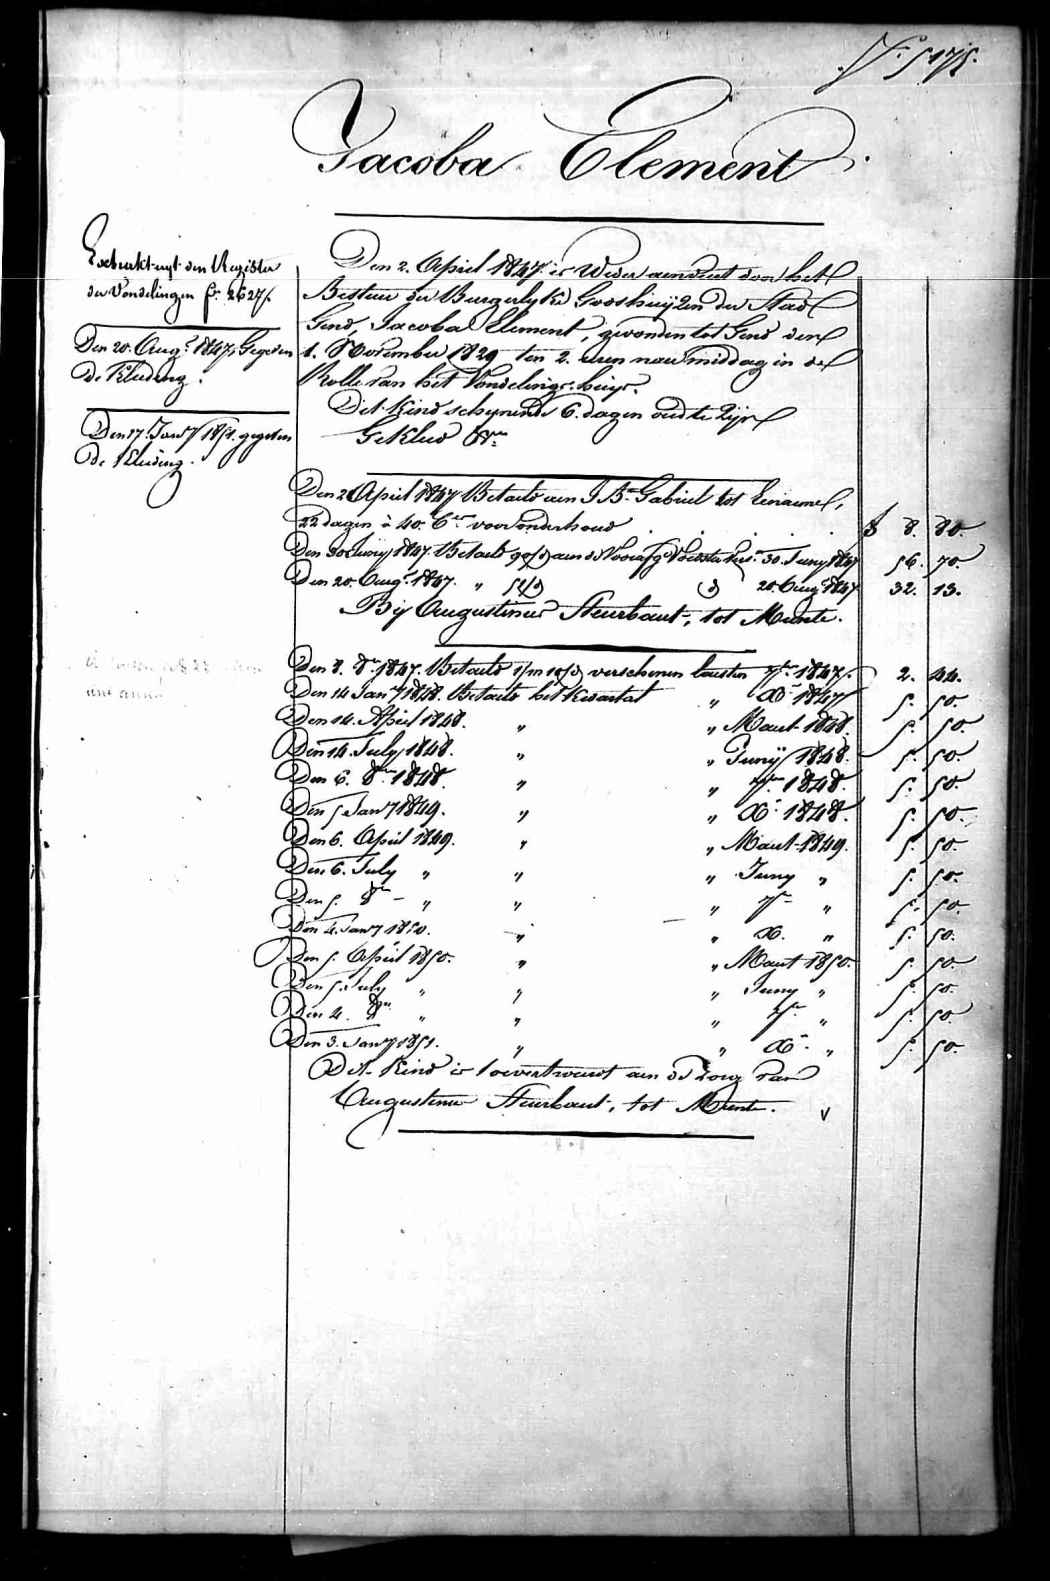 Nº 5175.
Jacoba Element.
Extrakt uyt den Register
der Vondelingen fº 2627.
Den 20. Augt 1847, Gegeven
De Kleeding.
Den 17. Janry 1851. gegeven
De Kleeding.
Den 2. April 1847. is Weder aenveerd door het
Bestuer der Burgerlyke Godshuyzen der Stad
Gend, Jacoba Element, gevonden tot Gend den
1. November 1829 ten 2. uren naermiddag in de
Rolle van het Vondelings-huys.
Dit Kind schynende 6. dagen oud te Zyn
Gekleed &a
Den 2 April 1847 Betaeld aen J. Bte Gabriel tot Eename,
22 dagen à 40. Cen voor onderhoud . . . . . f 8. 80.
Den 30 Juny 1847. Betaeld 90/d aen de Voedster 30. Juny 1847 56. 70.
Den 20. Augt 1847. " 51/d 20. Augt 1847 32. 13.
By Augustinus Steurbaut, tot Munte.
Den 8. 8er 1847. Betaeld verschenen laesten 7ber 1847. 2. 44.
Den 14 Janry 1848. Betaeld het Kwartael " Xr 1847 5. 50.
Den 14. April 1848. " " Maert 1848. 5. 50.
Den 14. July 1848. " " Juny 1848. 5. 50.
Den 6. 8er 1848. " " 7ber 1848. 5. 50.
Den 5 Janry 1849. " " Xr 1848. 5. 50.
Den 6. April 1849. " " Maert 1849. 5. 50.
Den 6. July " " " Juny " 5. 50.
Den 5. 8er " " " 7br " 5. 50.
Den 4. Janry 1850. " " X. " 5. 50.
Den 5. April 1850. " " Maert 1850. 5. 50.
Den 5. July " " " Juny " 5. 50.
Den 4. 8ber " " " 7br " 5. 50.
Den 3. Janry 1851. " " Xr " 5. 50.
Dit Kind is toevertrouwt aen de Zorg van
Augustinus Steurbaut, tot Munte. v